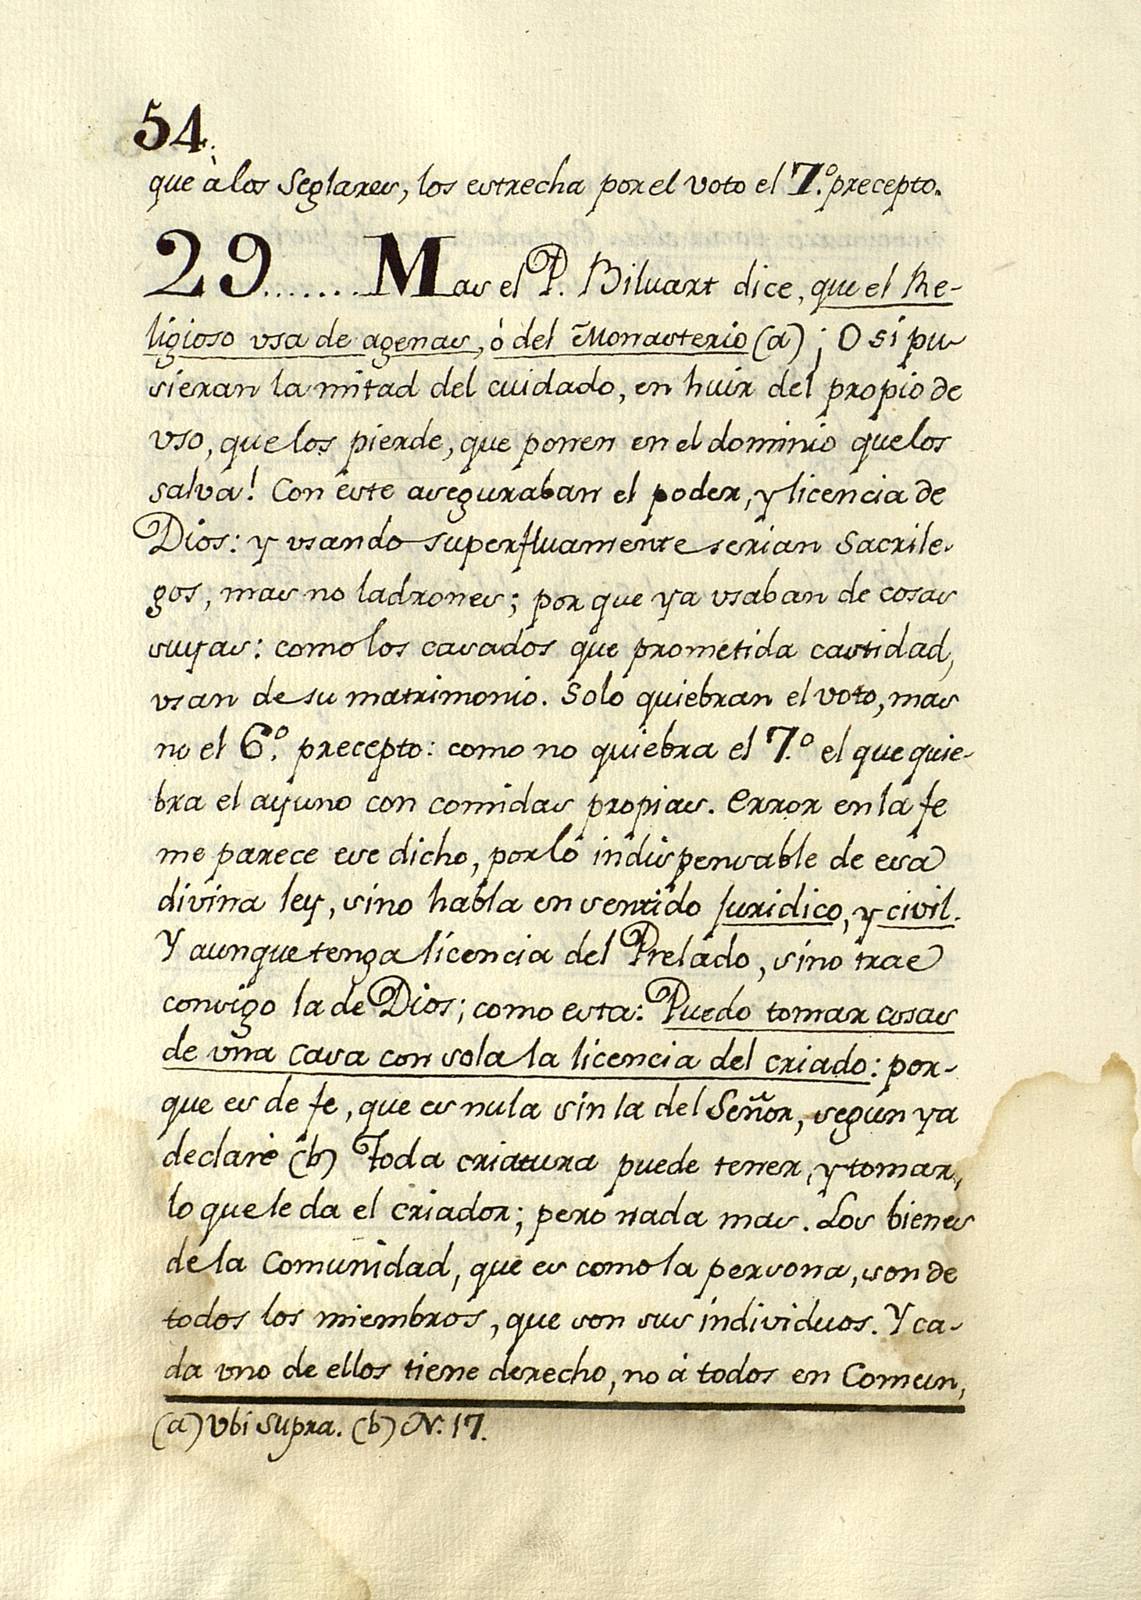 54.
que à los Seglares, los estrecha por el voto el 7.º precepto.
29.......Mas el P. Biluart dice, que el Re-
ligioso usa de agenas, ò del Monasterio (a); O si pu-
sieran la mitad del cuidado, en huir del propio de
uso, que los pierde, que ponen en el dominio que los
salva! Con este aseguraban el poder, y licencia de
Dios: y usando superfluamente serian Sacrile-
gos, mas no ladrones; por que ya usaban de cosas
suyas: como los casados que prometida castidad,
usan de su matrimonio. Solo quiebran el voto, mas
no el 6.º precepto: como no quiebra el 7.º el que quie-
bra el ayuno con comidas propias. Error en la fe
me parece ese dicho, por lo indispensable de esa
divina ley, sino habla en sentido Juridico, y civil.
Y aunque tenga licencia del Prelado, sino trae
consigo la de Dios; como esta: Puedo tomar cosas
de una casa con sola la licencia del criado: por-
que es de fe, que es nula sin la del Señor, segun ya
declaré (b) Toda criatura puede tener, y tomar,
lo que le da el criador; pero nada mas. Los bienes
de la Comunidad, que es como la persona, son de
todos los miembros, que son sus individuos. Y ca-
da uno de ellos tiene derecho, no á todos en Comun,
(a) Ubi Supra. (b) N. 17.